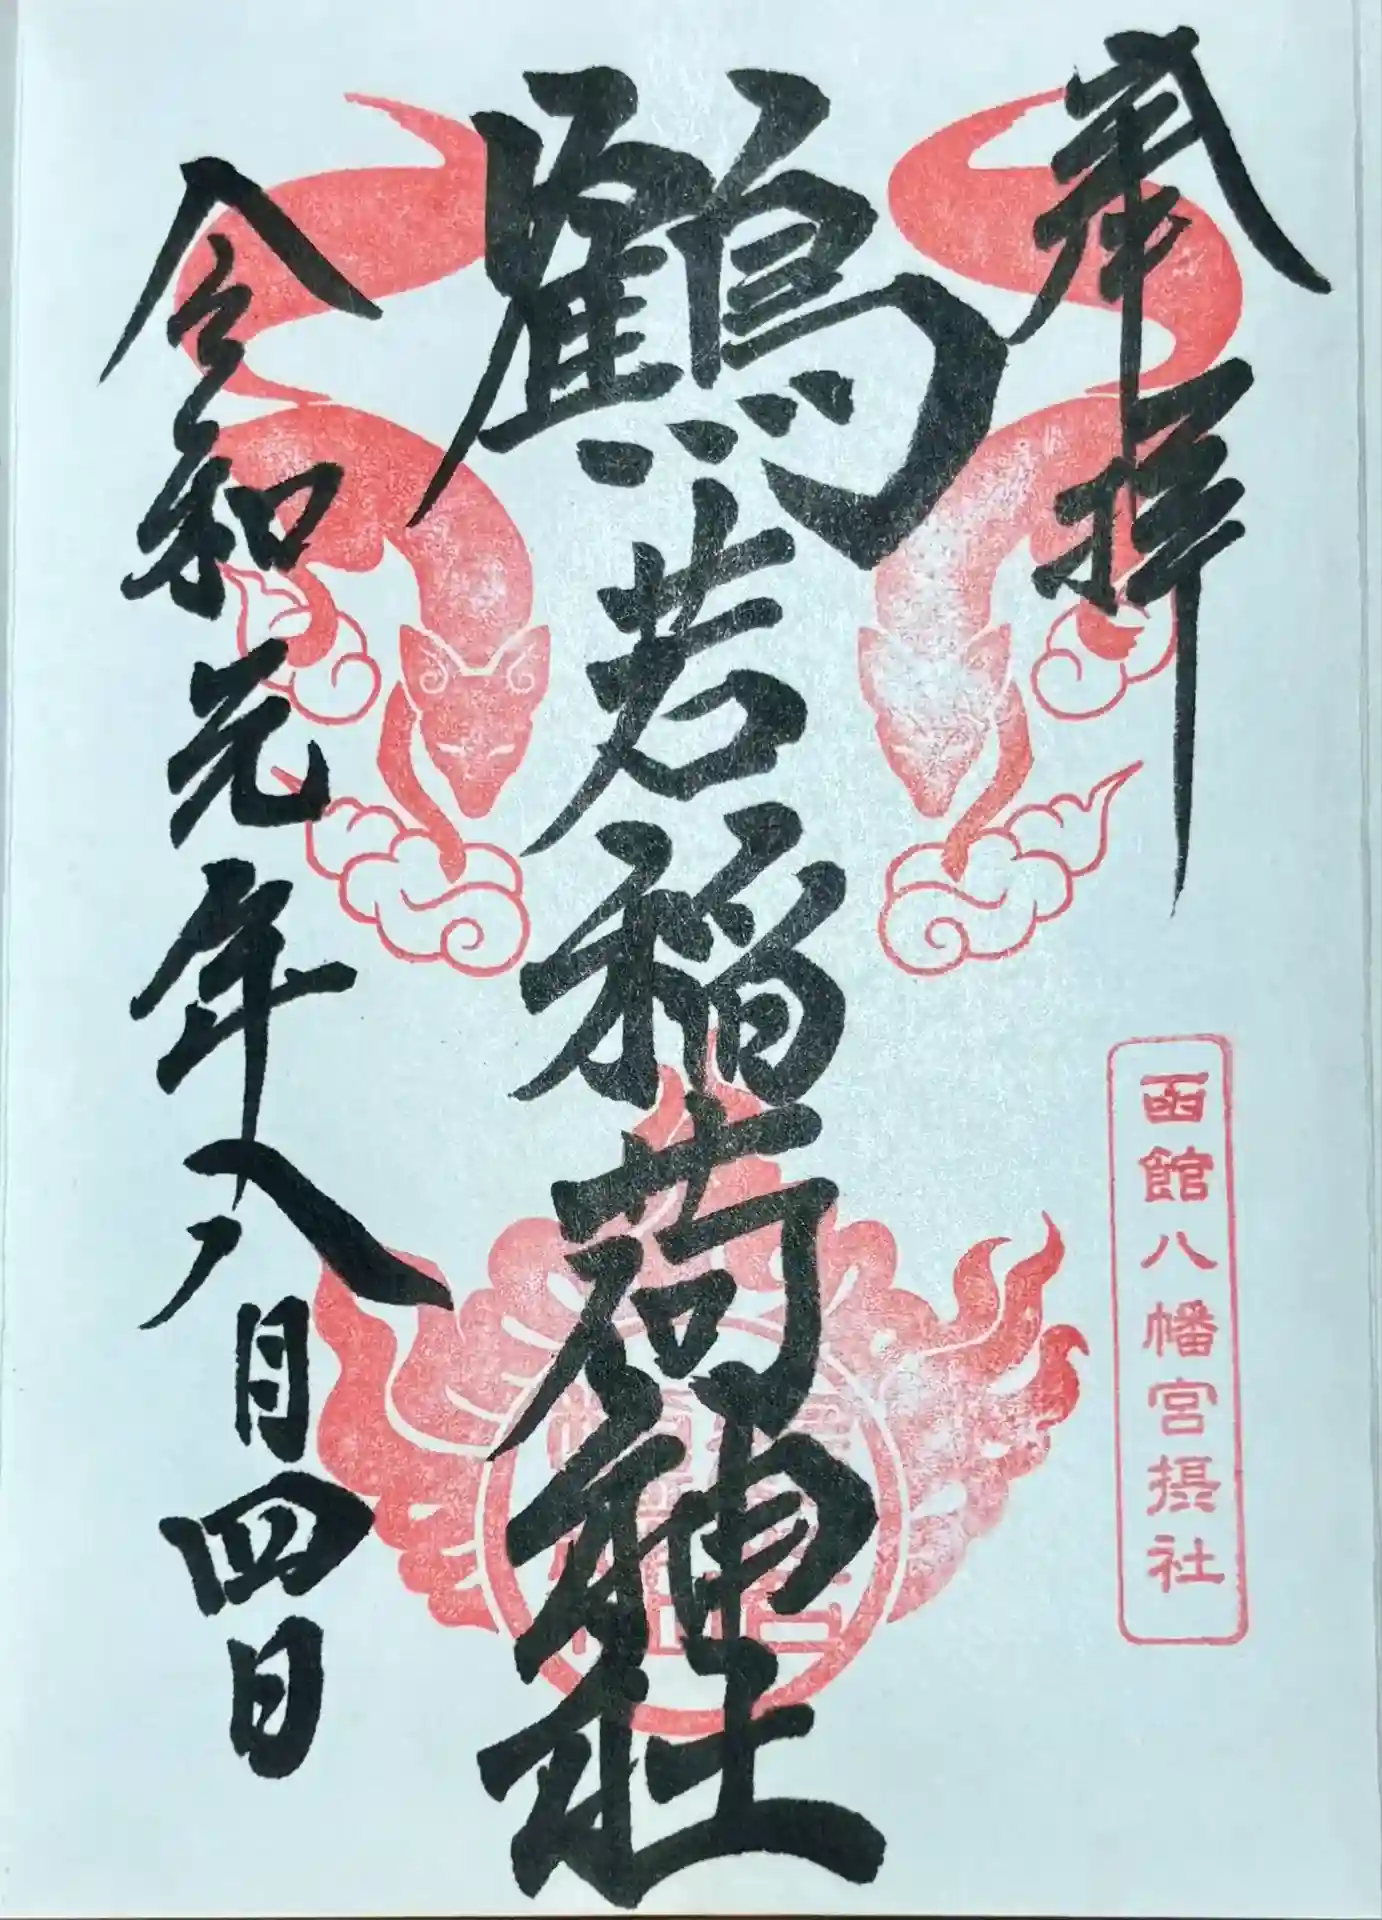 奉拝
函館八幡宮摂社
鶴若稲荷神社
令和元年八月四日